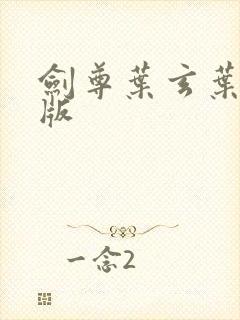 劍尊葉玄葉
版
一念2